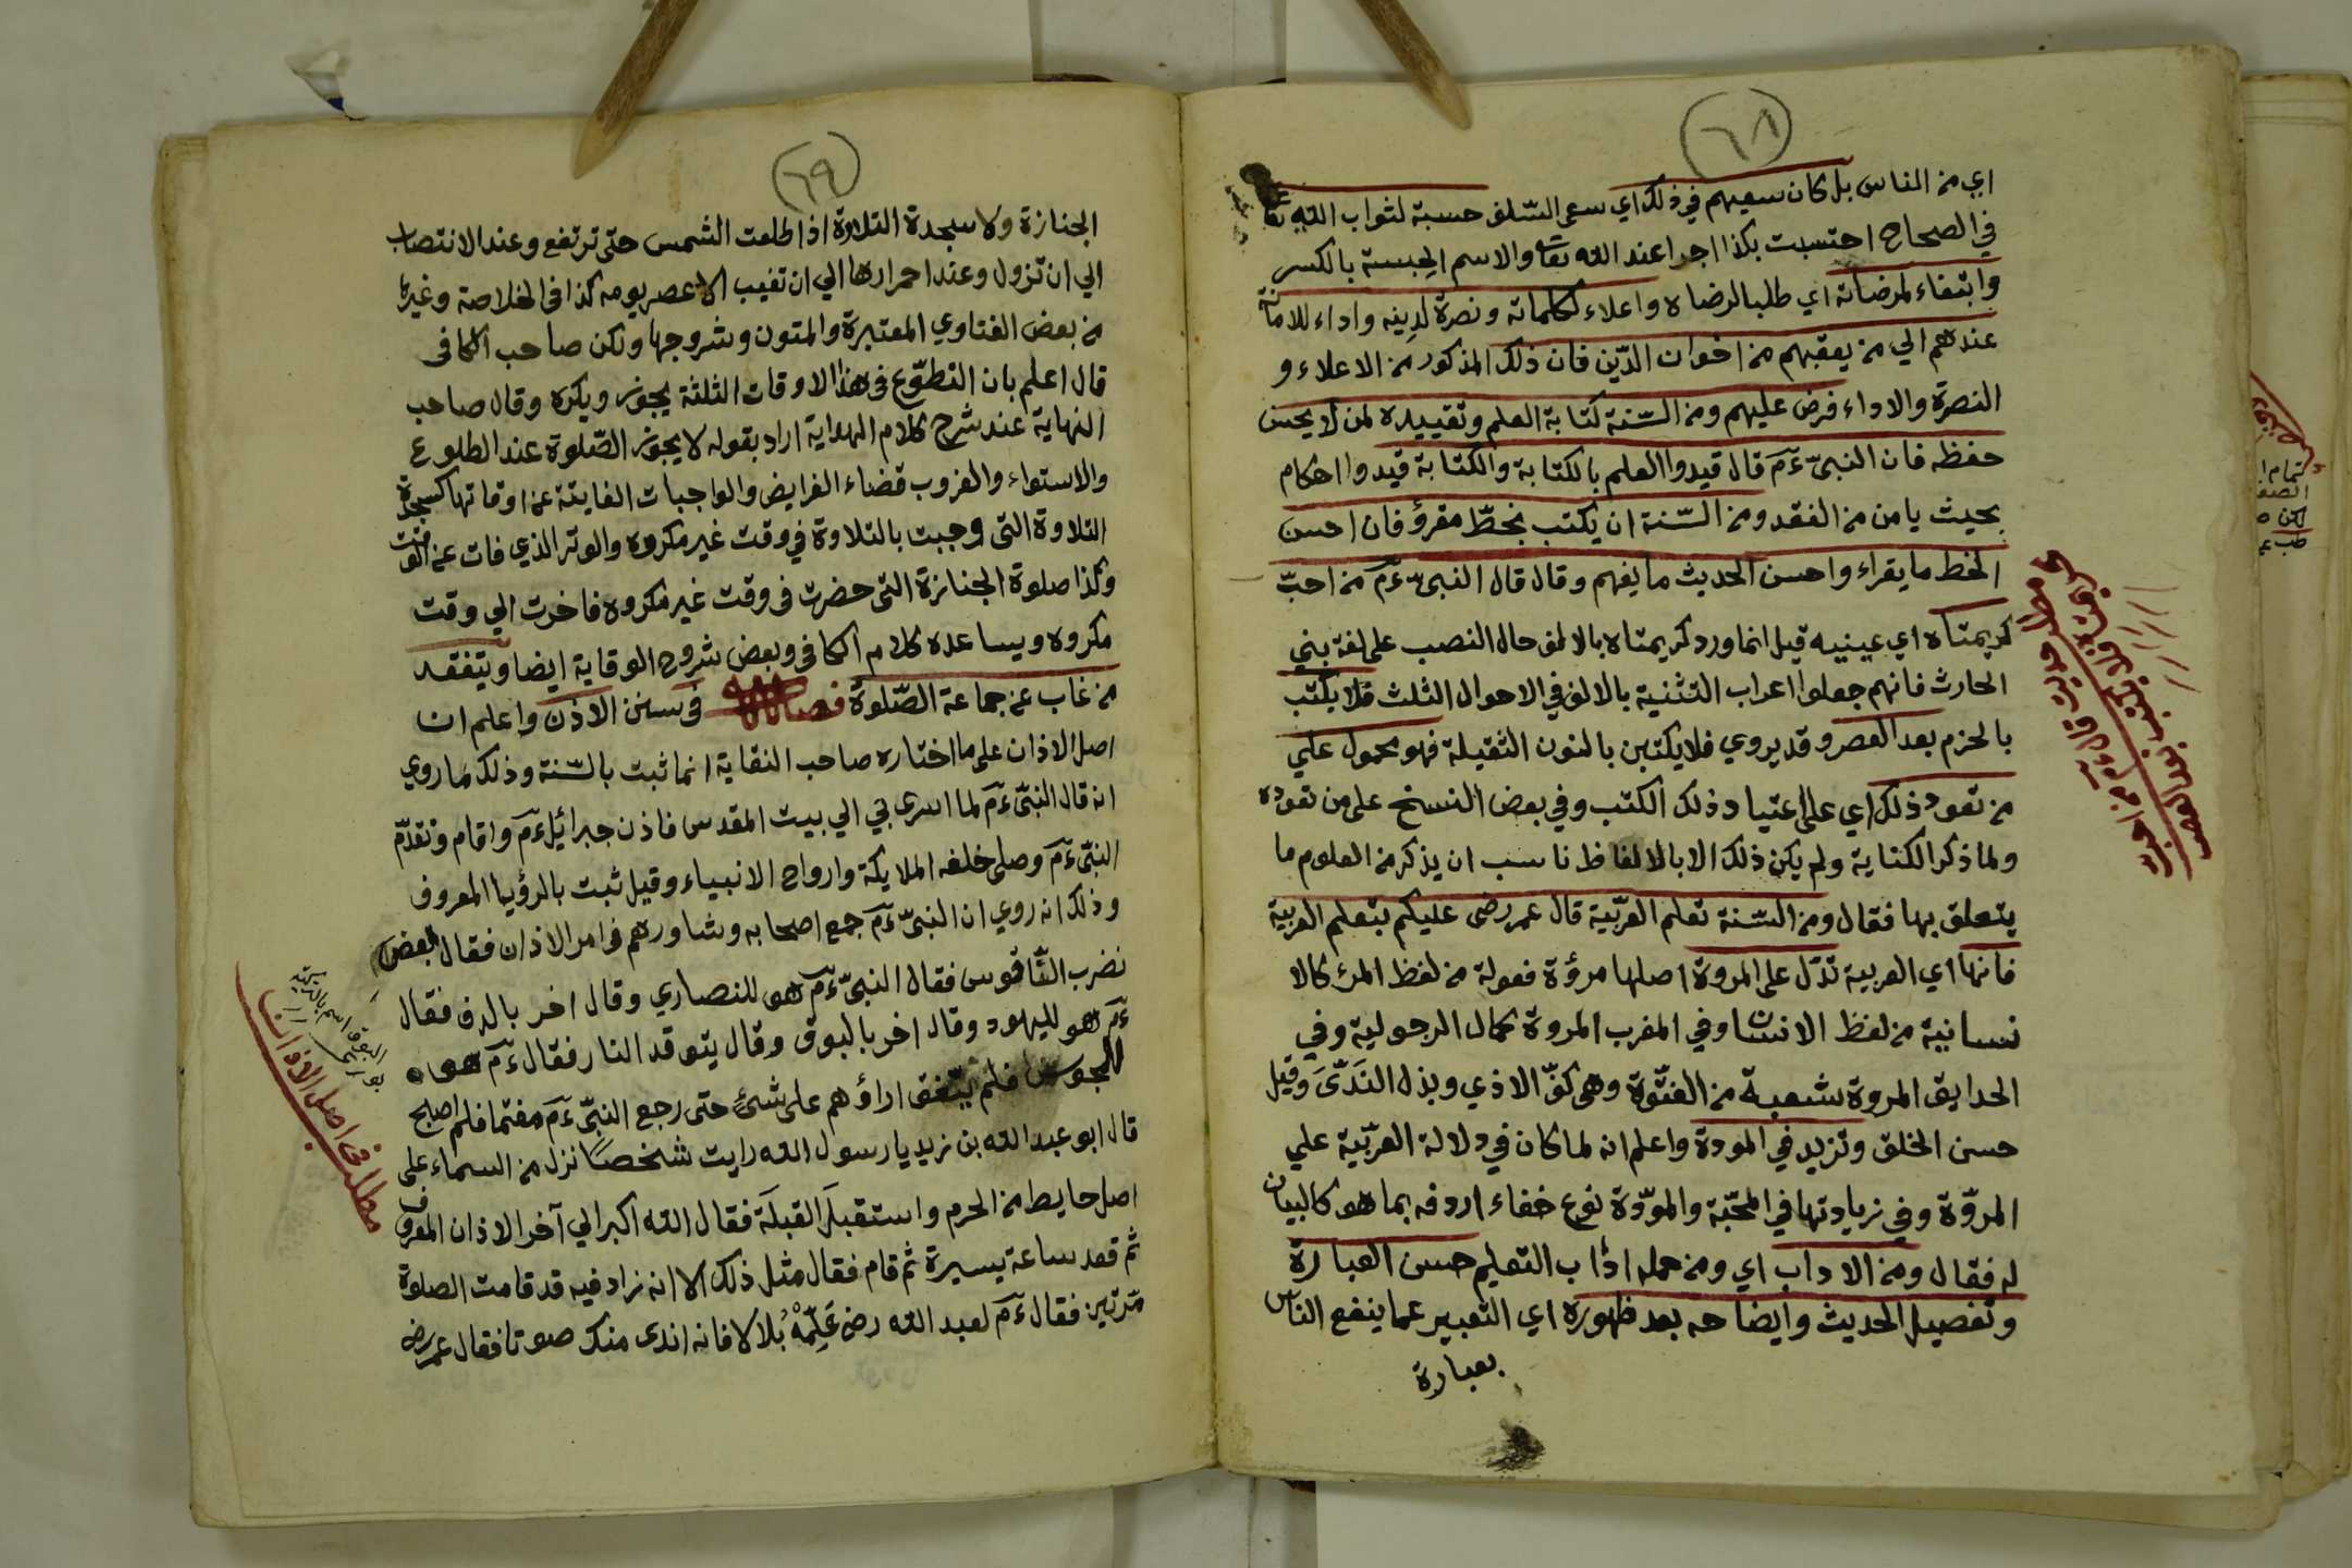 ٦٨
اي من الناس بل كان سعيهم في ذلك اي سعى السّلف حسبة لثواب الله تعا
في الصحاح احتسبت بكذا اجرا عند الله تعا والاسم الحسبة بالكسر
وابتغاء لمرضاته اي طلبا لرضاه واعلاء لكلماته ونصرة لدينه واداء للامانة
عندهم الي من يعقبهم من اخوان الدّين فان ذلك المذكور من الاعلاء و
النصرة والاداء فرض عليهم ومن السّنة كتابة العلم وتقييده لمن لا يحسن
حفظه فان النبىّ ءم قال قيدوا العلم بالكتابة والكتابة قيدوا احكام
بحيث يامن من الفقد ومن السّنة ان يكتب بخطّ مقرؤ فان احسن
الخط ما يقراء واحسن الحديث ما يفهم وقال قال النبىّ ءم من احبّ
كريمتاه اي عينيه قيل انما ورد كريمتاه بالالف حال النصب على لغة بني
الحارث فانهم جعلوا اعراب التثنية بالالف في الاحوال الثلث فلا يكتب
بالجزم بعد العصر وقد يروي فلا يكتبن بالنون الثقيلة فهو محمول علي
من تعود ذلك اي على اعتياد ذلك الكتب وفي بعض النسخ على من تعوده
ولما ذكر الكتابة ولم يكن ذلك الا بالالفاظ ناسب ان يذكر من العلوم ما
يتعلق بها فقال ومن السّنة تعلم العربّية قال عمر رضى عليكم بتعلم العربية
فانها اي العربية تدّل على المروة اصلها مرؤة فعولة من لفظ المرء كالا
نسانية من لفظ الانسان وفي المغرب المروة كمال الرجولية وفي
الحدايق المروة شعبة من الفتّوة وهى كفّ الاذي وبذل النَدَىَ وقيل
حسن الخلق وتزيد في المودة واعلم انه لما كان في دلالة العربّية علي
المروّة وفي زيادتها في المحّبة والموّدة نوع خفاء اردفه بما هو كالبيان
له فقال ومن الاداب اي ومن جمله اداب التعليم حسن العبارة
وتفصيل الحديث وايضاحه بعد ظهوره اي التعبير عما ينفع الناس
بعبارة
مطلب حديث قال ءم من احب
كريمتاه فلا يكتب بعد العصر
٦٩
الجنازة ولا سجدة التلاوة اذا طلعت الشمس حتى ترتفع وعند الانتصاب
الي ان تزول وعند احمرارها الي ان تغيب الا عصر يومه كذا في الخلاصة وغيرها
من بعض الفتاوي المعتبرة والمتون وشروحها ولكن صاحب الكافى
قال اعلم بان التطوّع في هذا الاوقات الثلثة يجوز ويكره وقال صاحب
النهاية عند شرح كلام الهداية اراد بقوله لا يجوز الصّلوة عند الطلوع
والاستواء والغروب قضاء الفرايض والواجبات الفايتة عن اوقاتها كسجدة
التلاوة التى وجبت بالتلاوة في وقت غير مكروه والوتر الذي فات عن الوقت
وكذا صلوة الجنازة التى حضرت فى وقت غير مكروه فاخرت الي وقت
مكروه ويساعده كلام الكافى وبعض شروح الوقاية ايضا ويتفقد
من غاب عن جماعة الصّلوة فصل فى سنن الاذن واعلم ان
اصل الاذان على ما اختاره صاحب النقاية انما ثبت بالسّنة وذلك ما روي
انه قال النبىّ ءم لما اسرى بي الي بيت المقدس فاذن جبرائيل ءم واقام وتقدّم
النبّى ءم وصلى خلفه الملايكة وارواح الانبياء وقيل ثبت بالرؤيا المعروف
وذلك انه روي ان النبىّ ءم جمع اصحابه وشاورهم فى امر الاذان فقال بعض
نضرب النّاقوس فقال النبىّ ءم هو للنصاري وقال اخر بالدف فقال
ءم هو لليهود وقال اخر بالبوق وقال يتوقد النار فقال ءم هو
للمجوس فلم يتّفق اراؤهم على شئ حتى رجع النبّى ءم مغتما فلم اصبح
قال ابو عبد الله بن زيد يا رسول الله رايت شخصًا نزل من السماء على
اصل حايط من الحرم واستقبل القبلة فقال الله اكبر الي آخر الاذان المعروف
ثم قعد ساعة يسيرة ثم قام فقال مثل ذلك الا انه زاد فيه قد قامت الصلوة
مرتين فقال ءم لعبد الله رضى عَلِّمْهُ بلالا فانه اندى منك صوتا فقال عمر رض
مطلب فى اصل الاذان